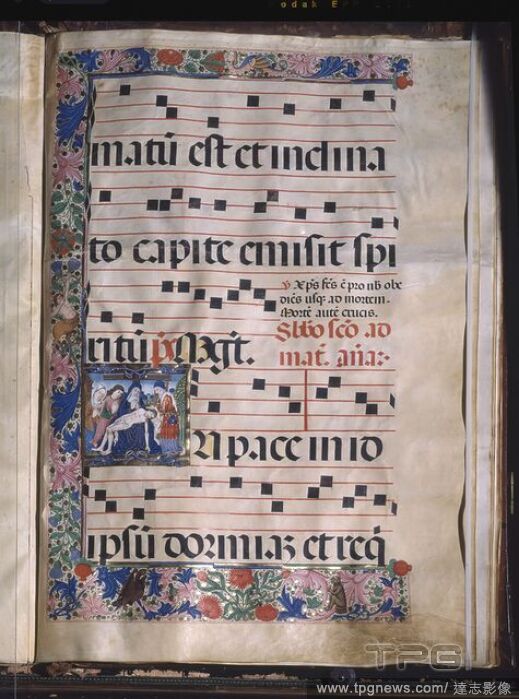 odak EP
matū est et inclina
to capite emisit spi
℣ Xp̄s fc̄s ē pro nb̄ obe
diēs usq; ad mortem.
Mortē autē crucis.
ritū
Sabbo scō ad
mat. ana:-
N pace in id
ipsū dormiaꝫ et req̄
TPG
www.tpgnews.com/ 達志影像